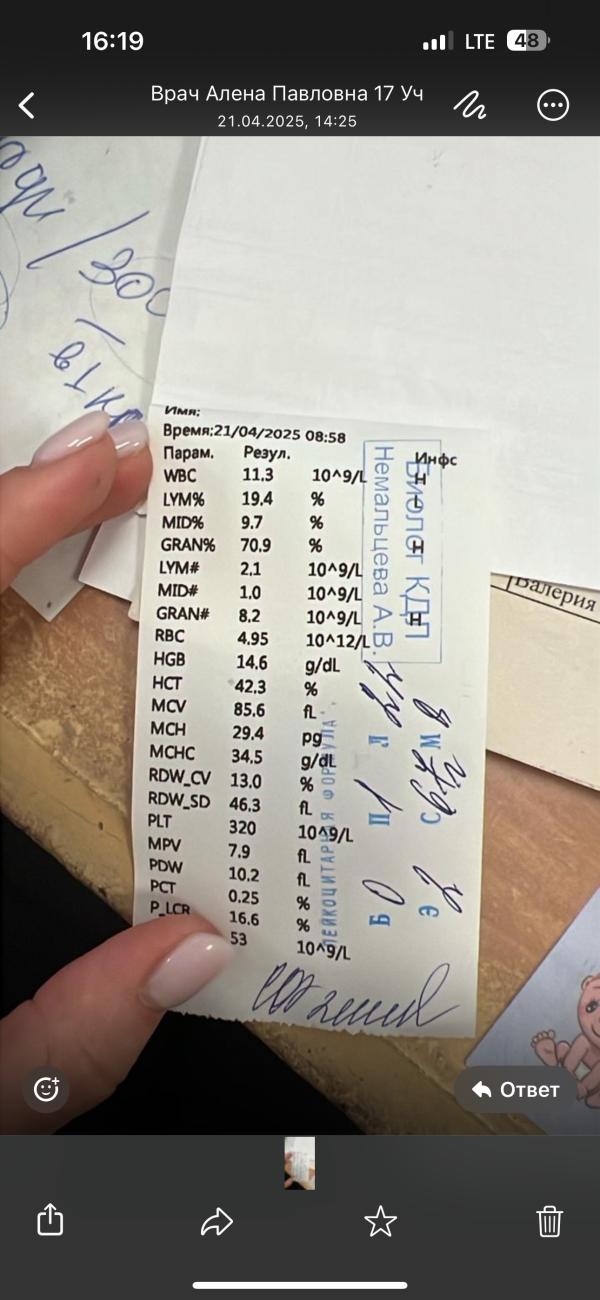 16:19
LTE 48
Врач Алена Павловна 17 Уч
21.04.2025, 14:25
Имя:
Время:21/04/2025 08:58
Парам. Резул. Инфс
WBC 11.3 10^9/L
LYM% 19.4 %
MID% 9.7 %
GRAN% 70.9 %
LYM# 2.1 10^9/L
MID# 1.0 10^9/L
GRAN# 8.2 10^9/L
RBC 4.95 10^12/L
HGB 14.6 g/dL
HCT 42.3 %
MCV 85.6 fL
MCH 29.4 pg
MCHC 34.5 g/dL
RDW_CV 13.0 %
RDW_SD 46.3 fL
PLT 320 10^9/L
MPV 7.9 fL
PDW 10.2 fL
PCT 0.25 %
P_LCR 16.6 %
53 10^9/L
Биолог КДЛ
Немальцева А.В.
ЛЕЙКОЦИТАРНАЯ ФОРМУЛА
Б П Г
Э С М
Валерия
Ответ